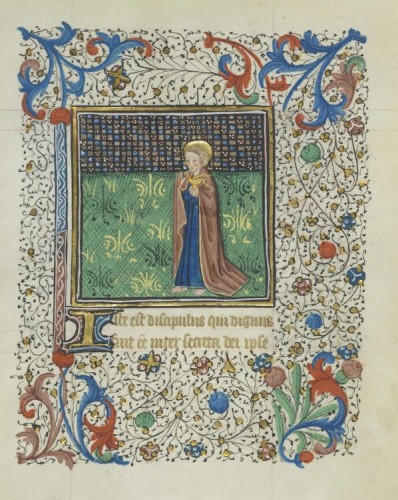 Iste est discipulus qui dignus
fuit ēē inter secreta dei ipse